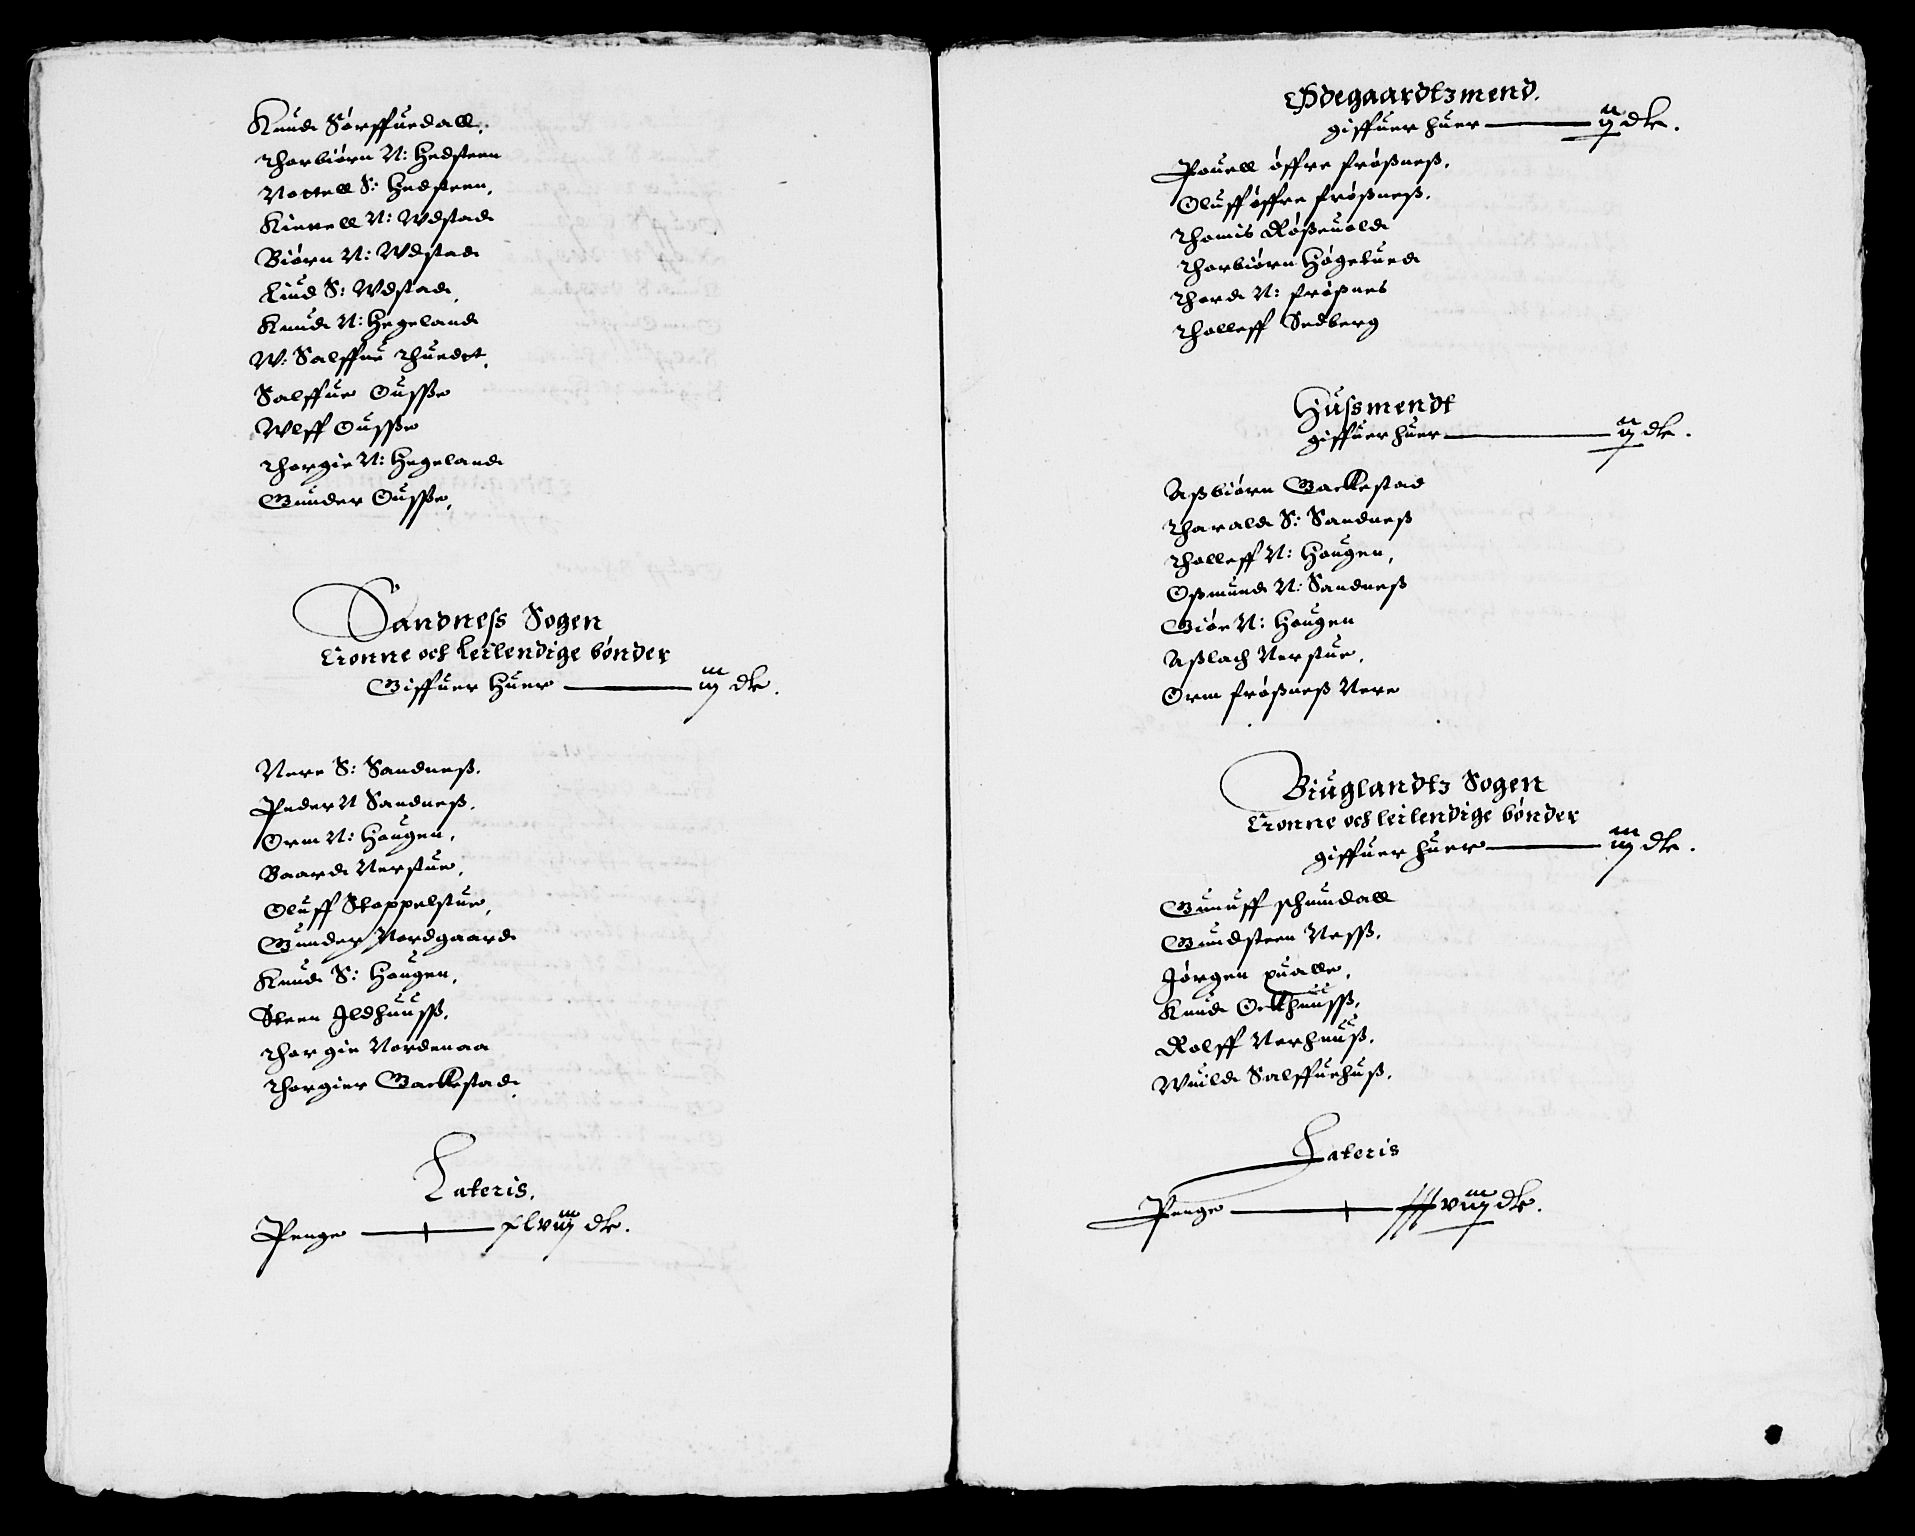 Knud Sørffuedall.
Thorbiørn N: Hedsteen
Nottell S: Hedsteen.
Kietell N: Wdstad
Biørn N: Wdstad
Liud S: Wdstad.
Knud N: Hegeland
W: Salffue Thuedtt.
Salffue Ousße
Wlff Ousße
Thorgie N: Hegeland
Gunder Ousße.
Sandness Sogen
Cronne och leilendige bønder
Giffuer huer iij dlr.
Nere S: Sandneß.
Peder N Sandneß.
Orm N: Hougen.
Baard Nerstue.
Oluff Stoppelstue.
Gunder Nordgaard
Knud S: Hougen.
Steen Ildhuuss.
Thorgie Nordenaa
Thorgier Backestad.
Lateris.
Penge xlviij dlr.
Ødegaardtzmend.
giffuer huer ij dlr.
Pouell øffre frøßneß.
Oluff øffre frøßneß.
Thomis Røßeuold
Thorbiørn Høgelued
Thord N: frøßnes
Tholleff Sedberg
Hussmendt
giffuer huer ij dlr.
Aßbiørn Backestad
Tharald S: Sandneß
Tholleff N: Hougen.
Oßmund N: Sandneß
Giør N: Hougen
Aßlach Nerstue.
Orm frøßneß Nere
Biuglandtz Sogen
Cronne och leilendige bønder
giffuer huer iij dlr.
Gunuff Schomdall
Gundsteen Ness.
Jørgen pualle.
Knud Ortthuuss.
Rolff Nerhuuß.
Wuild Salffuehuß.
Lateris
Penge viij dlr.